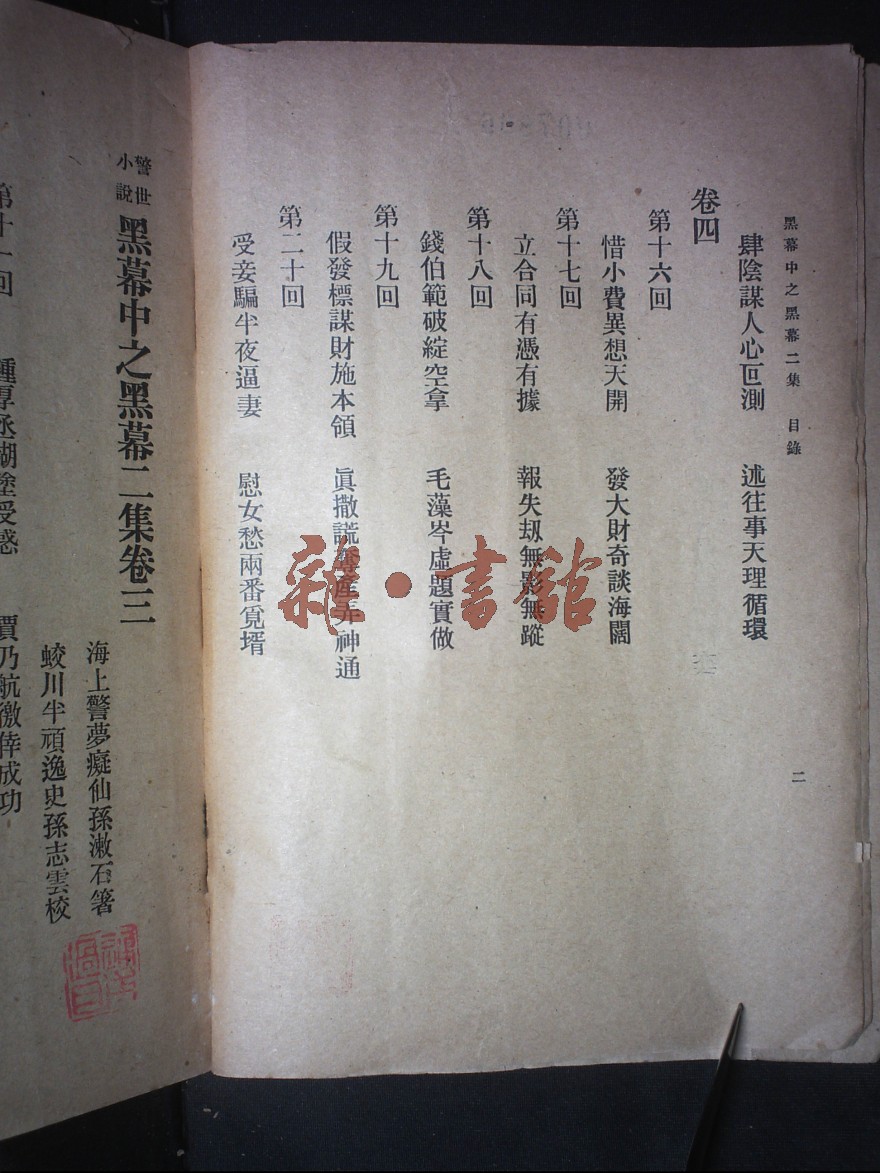 黑幕中之黑幕二集　目錄
肆陰謀人心叵測　述往事天理循環
卷四
第十六回
惜小費異想天開　發大財奇談海闊
第十七回
立合同有憑有據　報失刼無影無蹤
第十八回
錢伯範破綻空拿　毛藻岑虛題實做
第十九回
假發標謀財施本領　眞撒謊奪產弄神通
第二十回
受妾騙半夜逼妻　慰女愁兩番覓壻
二
雜·書館
警世小說
黑幕中之黑幕二集卷三
海上警夢癡仙孫漱石箸
蛟川半頑逸史孫志雲校
第十一回　鍾厚丞糊塗受惑　賈乃航徼倖成功